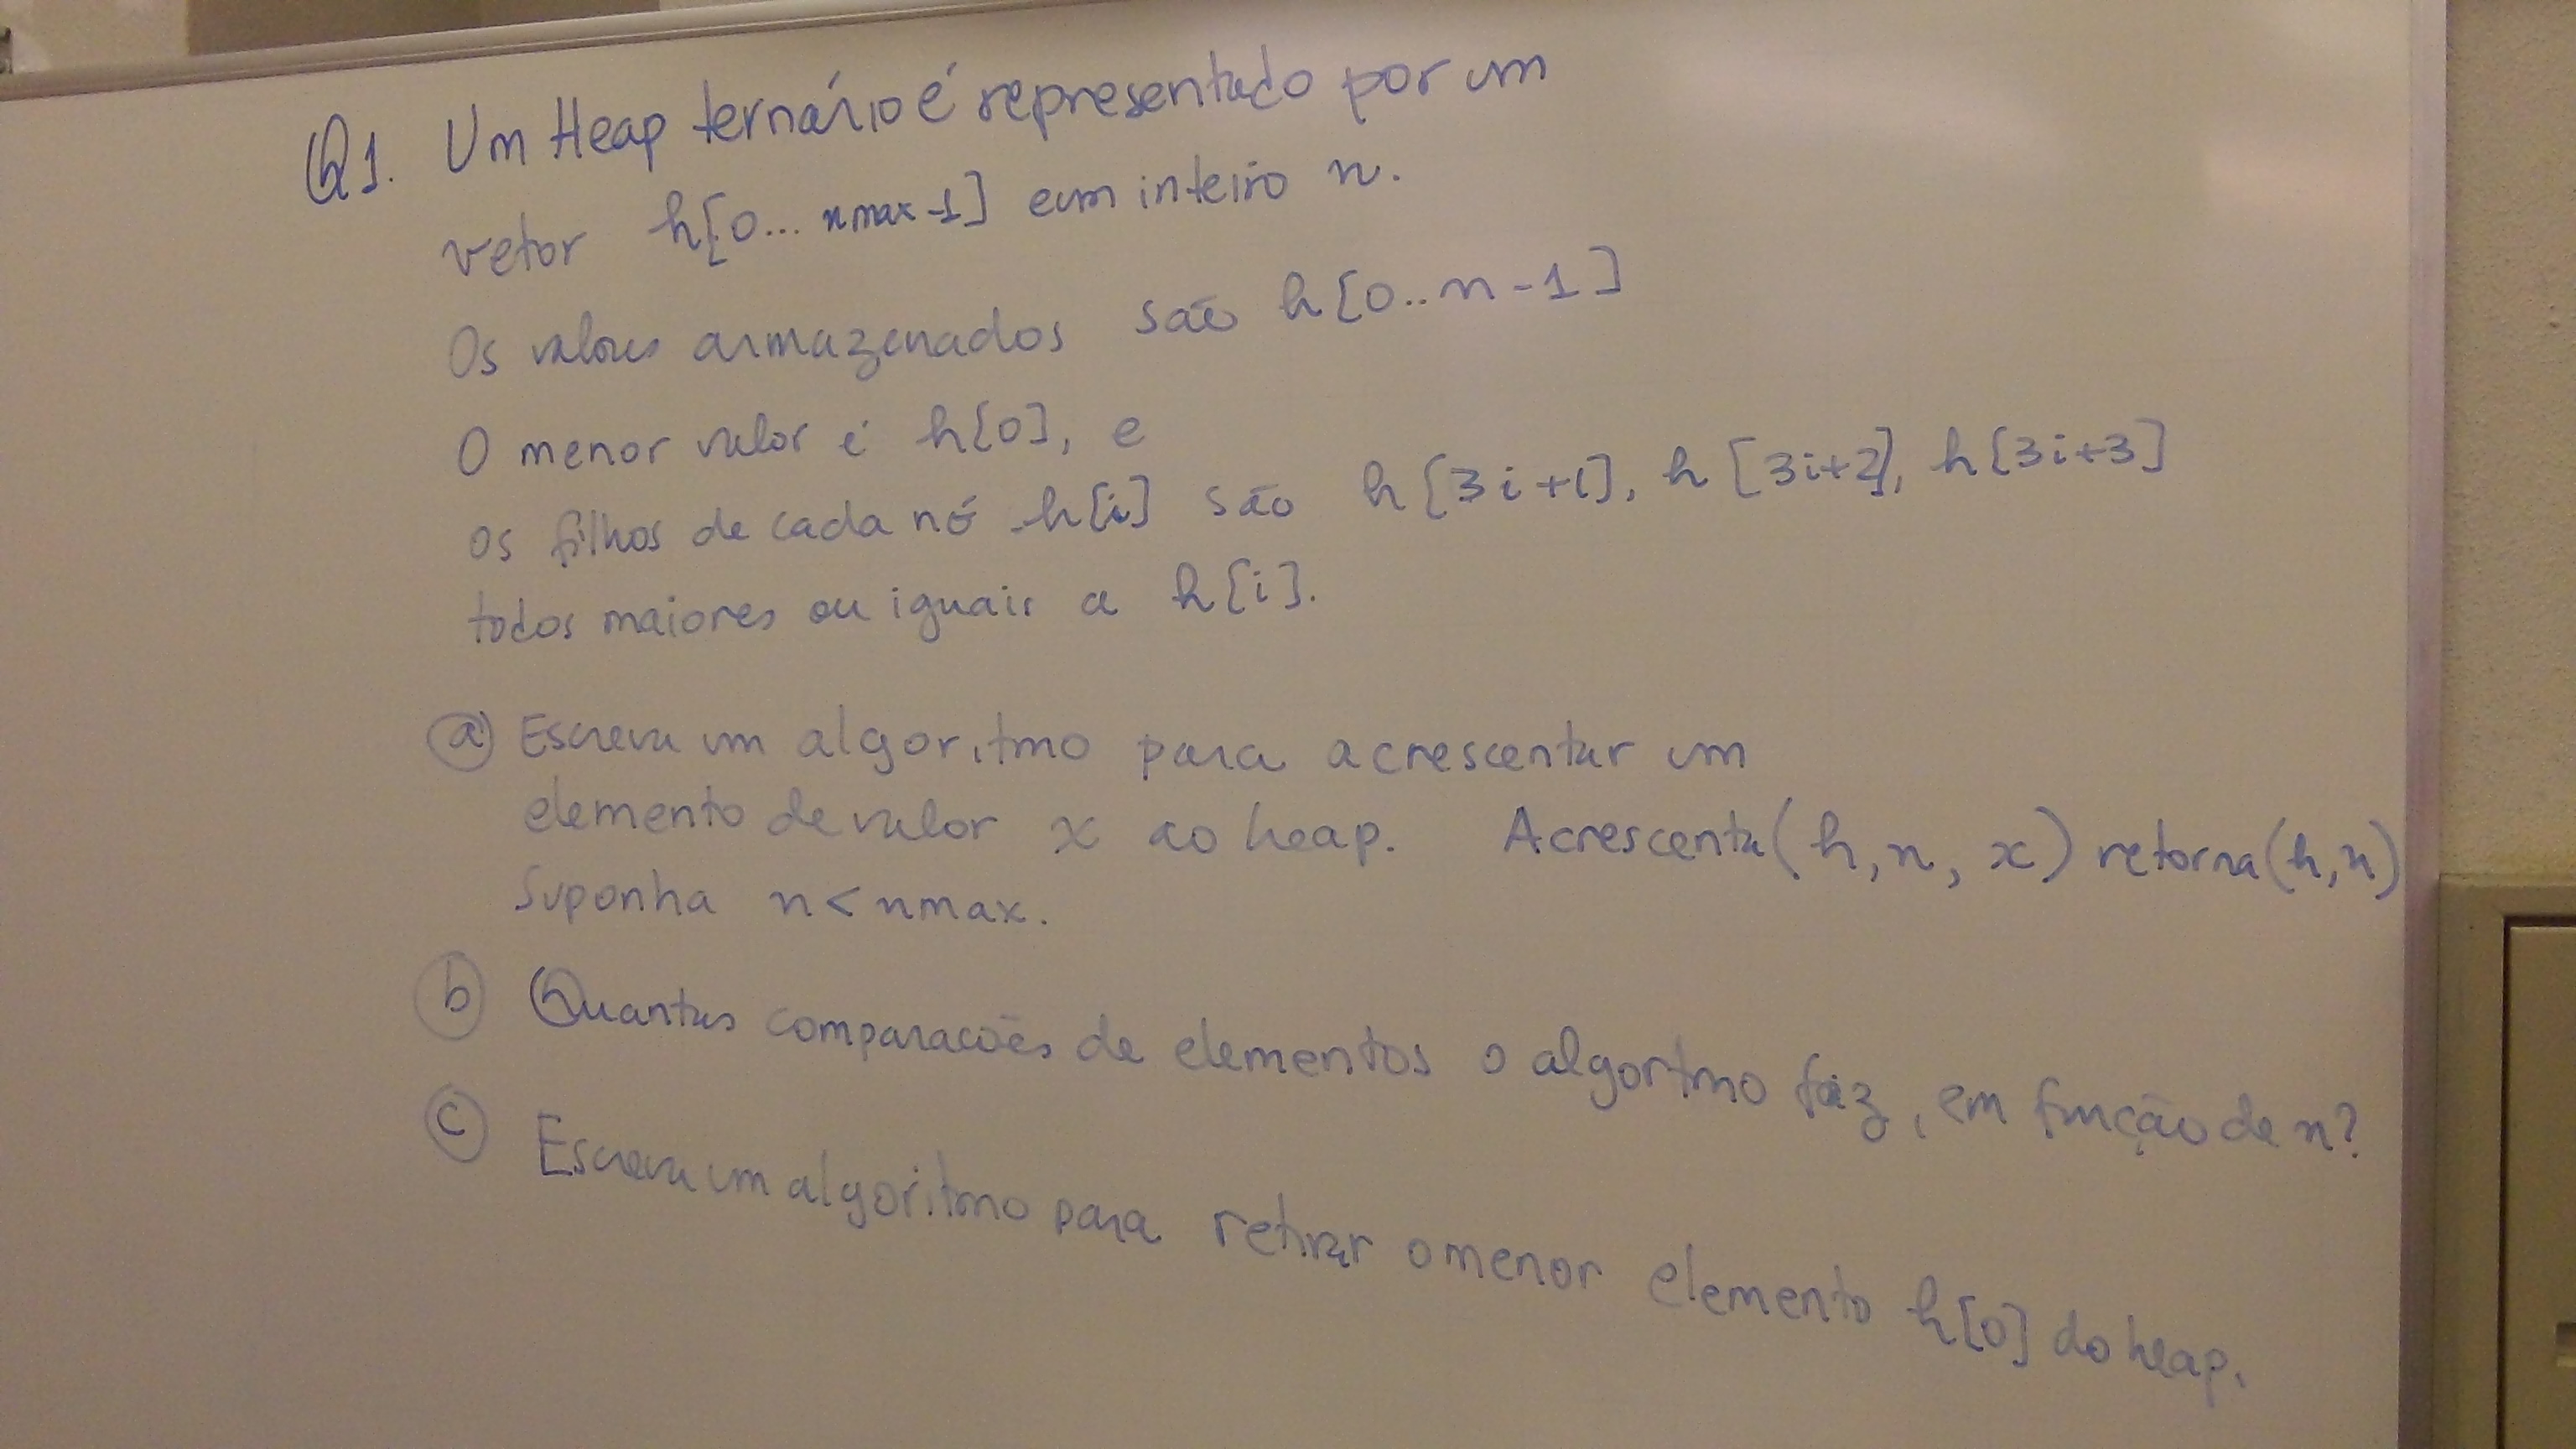 Q1. Um Heap ternário é representado por um
vetor h[0... nmax-1] e um inteiro n.
Os valores armazenados são h[0..n-1]
O menor valor é h[0], e
os filhos de cada nó h[i] são h[3i+1], h[3i+2], h[3i+3]
todos maiores ou iguais a h[i].
a) Escreva um algoritmo para acrescentar um
elemento de valor x ao heap. Acrescenta(h, n, x) retorna(h,n)
Suponha n<nmax.
b) Quantas comparacões de elementos o algoritmo faz, em função de n?
c) Escreva um algoritmo para retirar o menor elemento h[0] do heap.